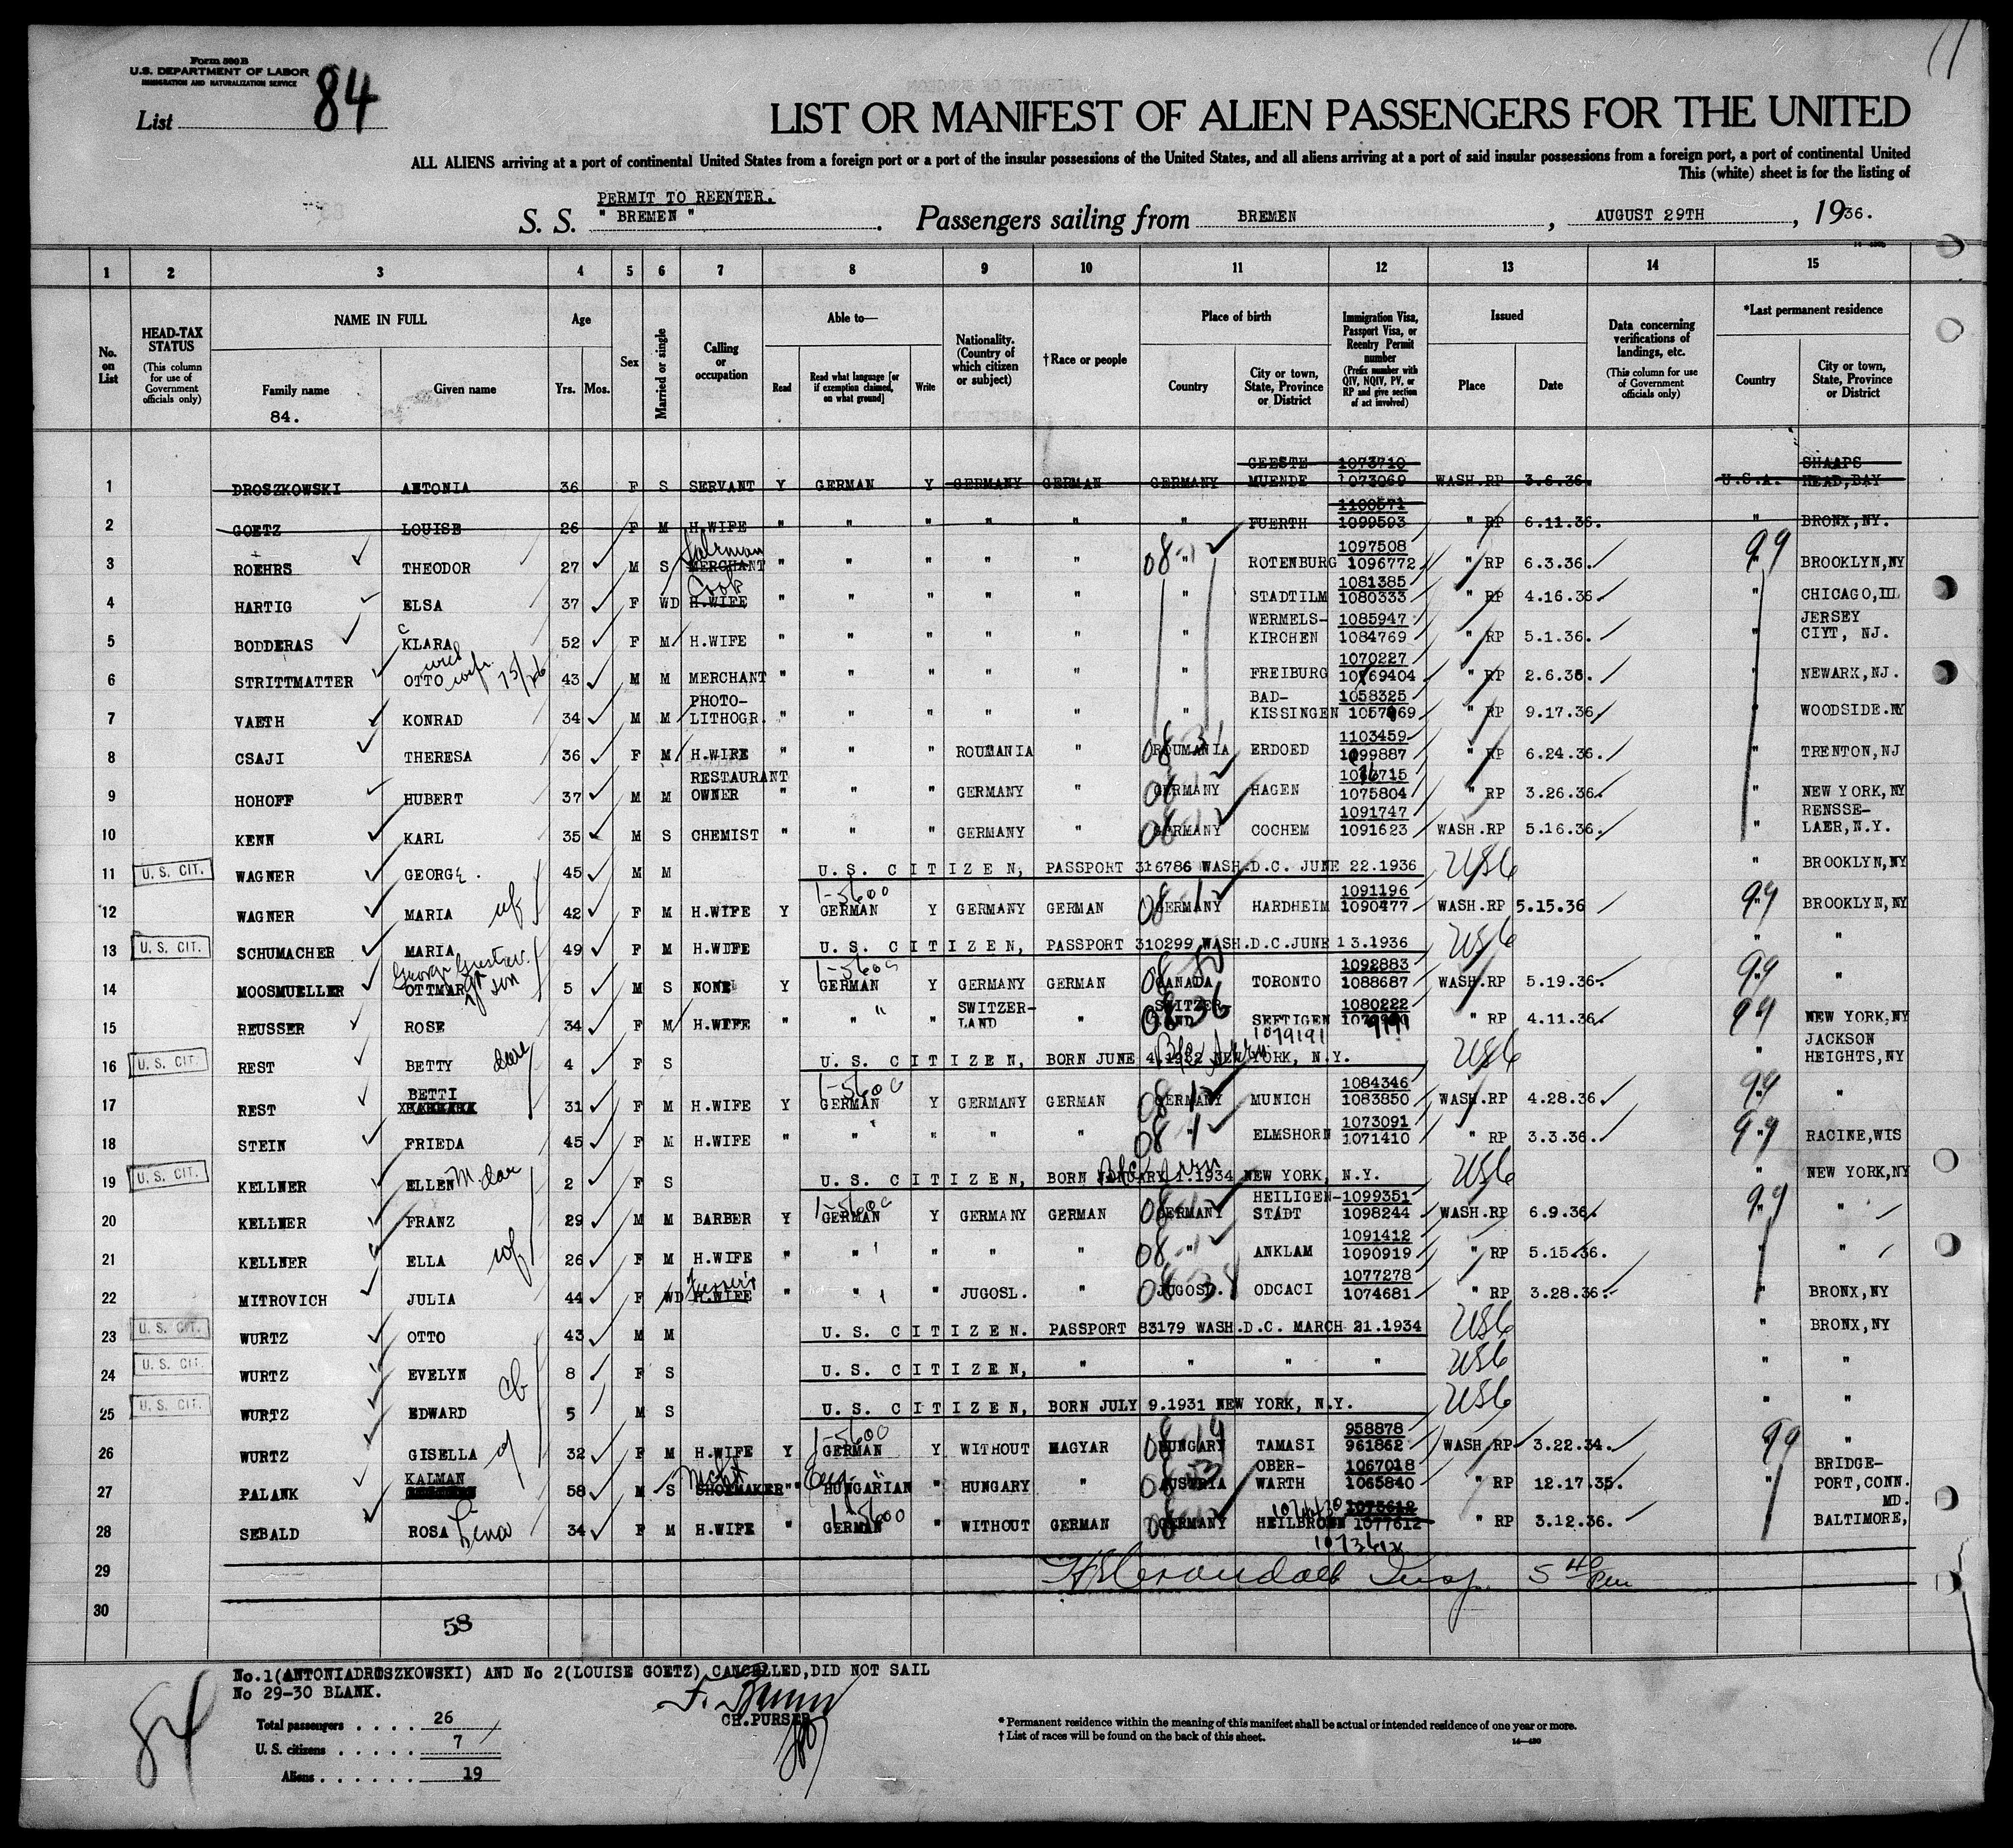 Form 500 B
U.S. DEPARTMENT OF LABOR
IMMIGRATION AND NATURALIZATION SERVICE
List 84
LIST OR MANIFEST OF ALIEN PASSENGERS FOR THE UNITED
ALL ALIENS arriving at a port of continental United States from a foreign port or a port of the insular possessions of the United States, and all aliens arriving at a port of said insular possessions from a foreign port, a port of continental United
This (white) sheet is for the listing of
PERMIT TO REENTER.
S. S. " BREMEN " . Passengers sailing from BREMEN , AUGUST 29TH , 1936.
1 2 3 4 5 6 7 8 9 10 11 12 13 14 15
No. on List
HEAD-TAX STATUS (This column for use of Government officials only)
NAME IN FULL Family name Given name
84.
Age Yrs. Mos.
Sex
Married or single
Calling or occupation
Able to— Read Read what language [or if exemption claimed, on what ground] Write
Nationality. (Country of which citizen or subject)
†Race or people
Place of birth Country City or town, State, Province or District
Immigration Visa, Passport Visa, or Reentry Permit number (Prefix number with QIV, NQIV, PV, or RP and give section of act involved)
Issued Place Date
Data concerning verifications of landings, etc. (This column for use of Government officials only)
*Last permanent residence Country City or town, State, Province or District
1 DROSZKOWSKI ANTONIA 36 F S SERVANT Y GERMAN Y GERMANY GERMAN GERMANY GEESTE MUENDE 1073710 1073069 WASH.RP 3.6.36. U.S.A. SHAAPS HEAD,BAY
2 GOETZ LOUISE 26 F M H.WIFE " " " " " " FUERTH 1100571 1099593 " RP 6.11.36. " BRONX,NY.
3 ROEHRS THEODOR 27 M S MERCHANT Salesman " " " " " " 08-12 ROTENBURG 1097508 1096772 " RP 6.3.36. 99 " BROOKLYN,NY
4 HARTIG ELSA 37 F WD H.WIFE Cook " " " " " " STADTILM 1081385 1080333 " RP 4.16.36. " CHICAGO,Ill
5 BODDERAS KLARA C 52 F M H.WIFE " " " " " " WERMELS- KIRCHEN 1085947 1084769 " RP 5.1.36. " JERSEY CIYT, NJ.
6 STRITTMATTER OTTO 43 M M MERCHANT " " " " " " FREIBURG 1070227 1069404 " RP 2.6.36. " NEWARK,NJ.
7 VAETH KONRAD 34 M M PHOTO- LITHOGR. " " " " " " BAD- KISSINGEN 1058325 " RP 9.17.36 " WOODSIDE.NY
8 CSAJI THERESA 36 F M H.WIRE " " " ROUMANIA " ROUMANIA ERDOED 1103459 1099887 " RP 6.24.36. " TRENTON,NJ
9 HOHOFF HUBERT 37 M M RESTAURANT OWNER " " " GERMANY " GERMANY HAGEN 1075804 " RP 3.26.36. " NEW YORK,NY
10 KENN KARL 35 M S CHEMIST " " " GERMANY " GERMANY COCHEM 1091747 1091623 WASH.RP 5.16.36. " RENSSE- LAER,N.Y.
11 U. S. CIT. WAGNER GEORGE . 45 M M U. S. C I T I Z E N, PASSPORT 316786 WASH.D.C. JUNE 22.1936 USC " BROOKLYN,NY
12 WAGNER MARIA wf 42 F M H.WIFE Y 1-5600 GERMAN Y GERMANY GERMAN GERMANY HARDHEIM 1091196 1090477 WASH.RP 5.15.36 99 BROOKLYN,NY
13 U. S. CIT. SCHUMACHER MARIA 49 F M H.WDFE U. S. C I T I Z E N, PASSPORT 310299 WASH.D.C.JUNE 13.1936 USC " "
14 MOOSMUELLER OTTMAR George Gustav son 5 M S NONE Y 1-5600 GERMAN Y GERMANY GERMAN CANADA TORONTO 1092883 1088687 WASH.RP 5.19.36. 99 "
15 REUSSER ROSE 34 F M H.WIFE " " " SWITZER- LAND " SWITZER- LAND SEFTIGEN 1080222 1079191 " RP 4.11.36. 99 NEW YORK,NY
16 U. S. CIT. REST BETTY dau 4 F S U. S. C I T I Z E N, BORN JUNE 4.1932 NEW YORK, N.Y. USC " JACKSON HEIGHTS,NY
17 REST BETTI 31 F M H.WIFE Y 1-5600 GERMAN Y GERMANY GERMAN GERMANY MUNICH 1084346 1083850 WASH.RP 4.28.36. 99 "
18 STEIN FRIEDA 45 F M H.WIFE " " " " " " ELMSHORN 1073091 1071410 " RP 3.3.36. 99 RACINE,WIS
19 U. S. CIT. KELLNER ELLEN M. dau 2 F S U. S. C I T I Z E N, BORN JANUARY 1.1934 NEW YORK, N.Y. USC " NEW YORK,NY
20 KELLNER FRANZ 29 M M BARBER Y 1-5600 GERMAN Y GERMANY GERMAN GERMANY HEILIGEN- STADT 1099351 1098244 WASH.RP 6.9.36. 99 "
21 KELLNER ELLA wf 26 F M H.WIFE " " " " " 08 " ANKLAM 1091412 1090919 " RP 5.15.36. " "
22 MITROVICH JULIA 44 F WD H.WIFE " " " JUGOSL. " JUGOSL. ODCACI 1077278 1074681 " RP 3.28.36. " BRONX,NY
23 U. S. CIT. WURTZ OTTO 43 M M U. S. C I T I Z E N. PASSPORT 83179 WASH.D.C. MARCH 21.1934 USC " BRONX,NY
24 U. S. CIT. WURTZ EVELYN 8 F S U. S. C I T I Z E N, " " " " USC " "
25 U. S. CIT. WURTZ EDWARD 5 M S U. S. C I T I Z E N, BORN JULY 9.1931 NEW YORK, N.Y. USC " "
26 WURTZ GISELLA 32 F M H.WIFE Y 1-5600 GERMAN Y WITHOUT MAGYAR HUNGARY TAMASI 958878 961862 WASH.RP 3.22.34. 99 "
27 PALANK KALMAN 58 M S SHOEMAKER " Eng. HUNGARIAN " HUNGARY " AUSTRIA OBER- WARTH 1067018 1065840 " RP 12.17.35. " BRIDGE- PORT,CONN.
28 SEBALD ROSA Lina 34 F M H.WIFE " 1-5600 GERMAN " WITHOUT GERMAN GERMANY HEILBRONN 1075612 1077612 1073612 " RP 3.12.36. " MD. BALTIMORE,
29 Insp.
30
58
No.1(ANTONIADROSZKOWSKI) AND No 2(LOUISE GOETZ) CANCELLED,DID NOT SAIL
No 29-30 BLANK.
CH.PURSER
84
Total passengers . . . . 26
U. S. citizens . . . . . 7
Aliens . . . . . . 19
* Permanent residence within the meaning of this manifest shall be actual or intended residence of one year or more.
† List of races will be found on the back of this sheet.